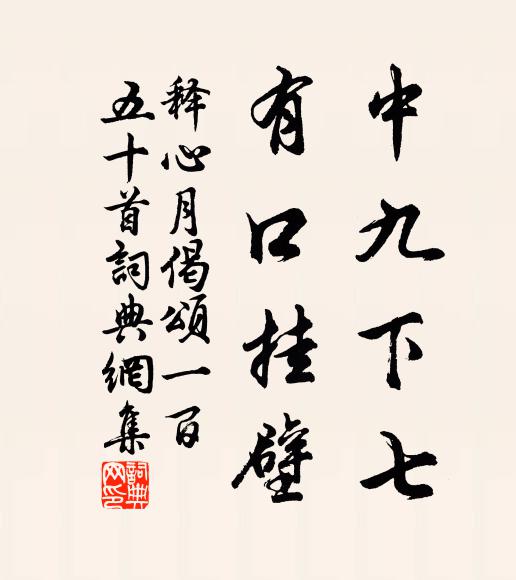 中九下七
有口挂壁
释心月偈頌一百
五十首詞典網集
詞典
网印